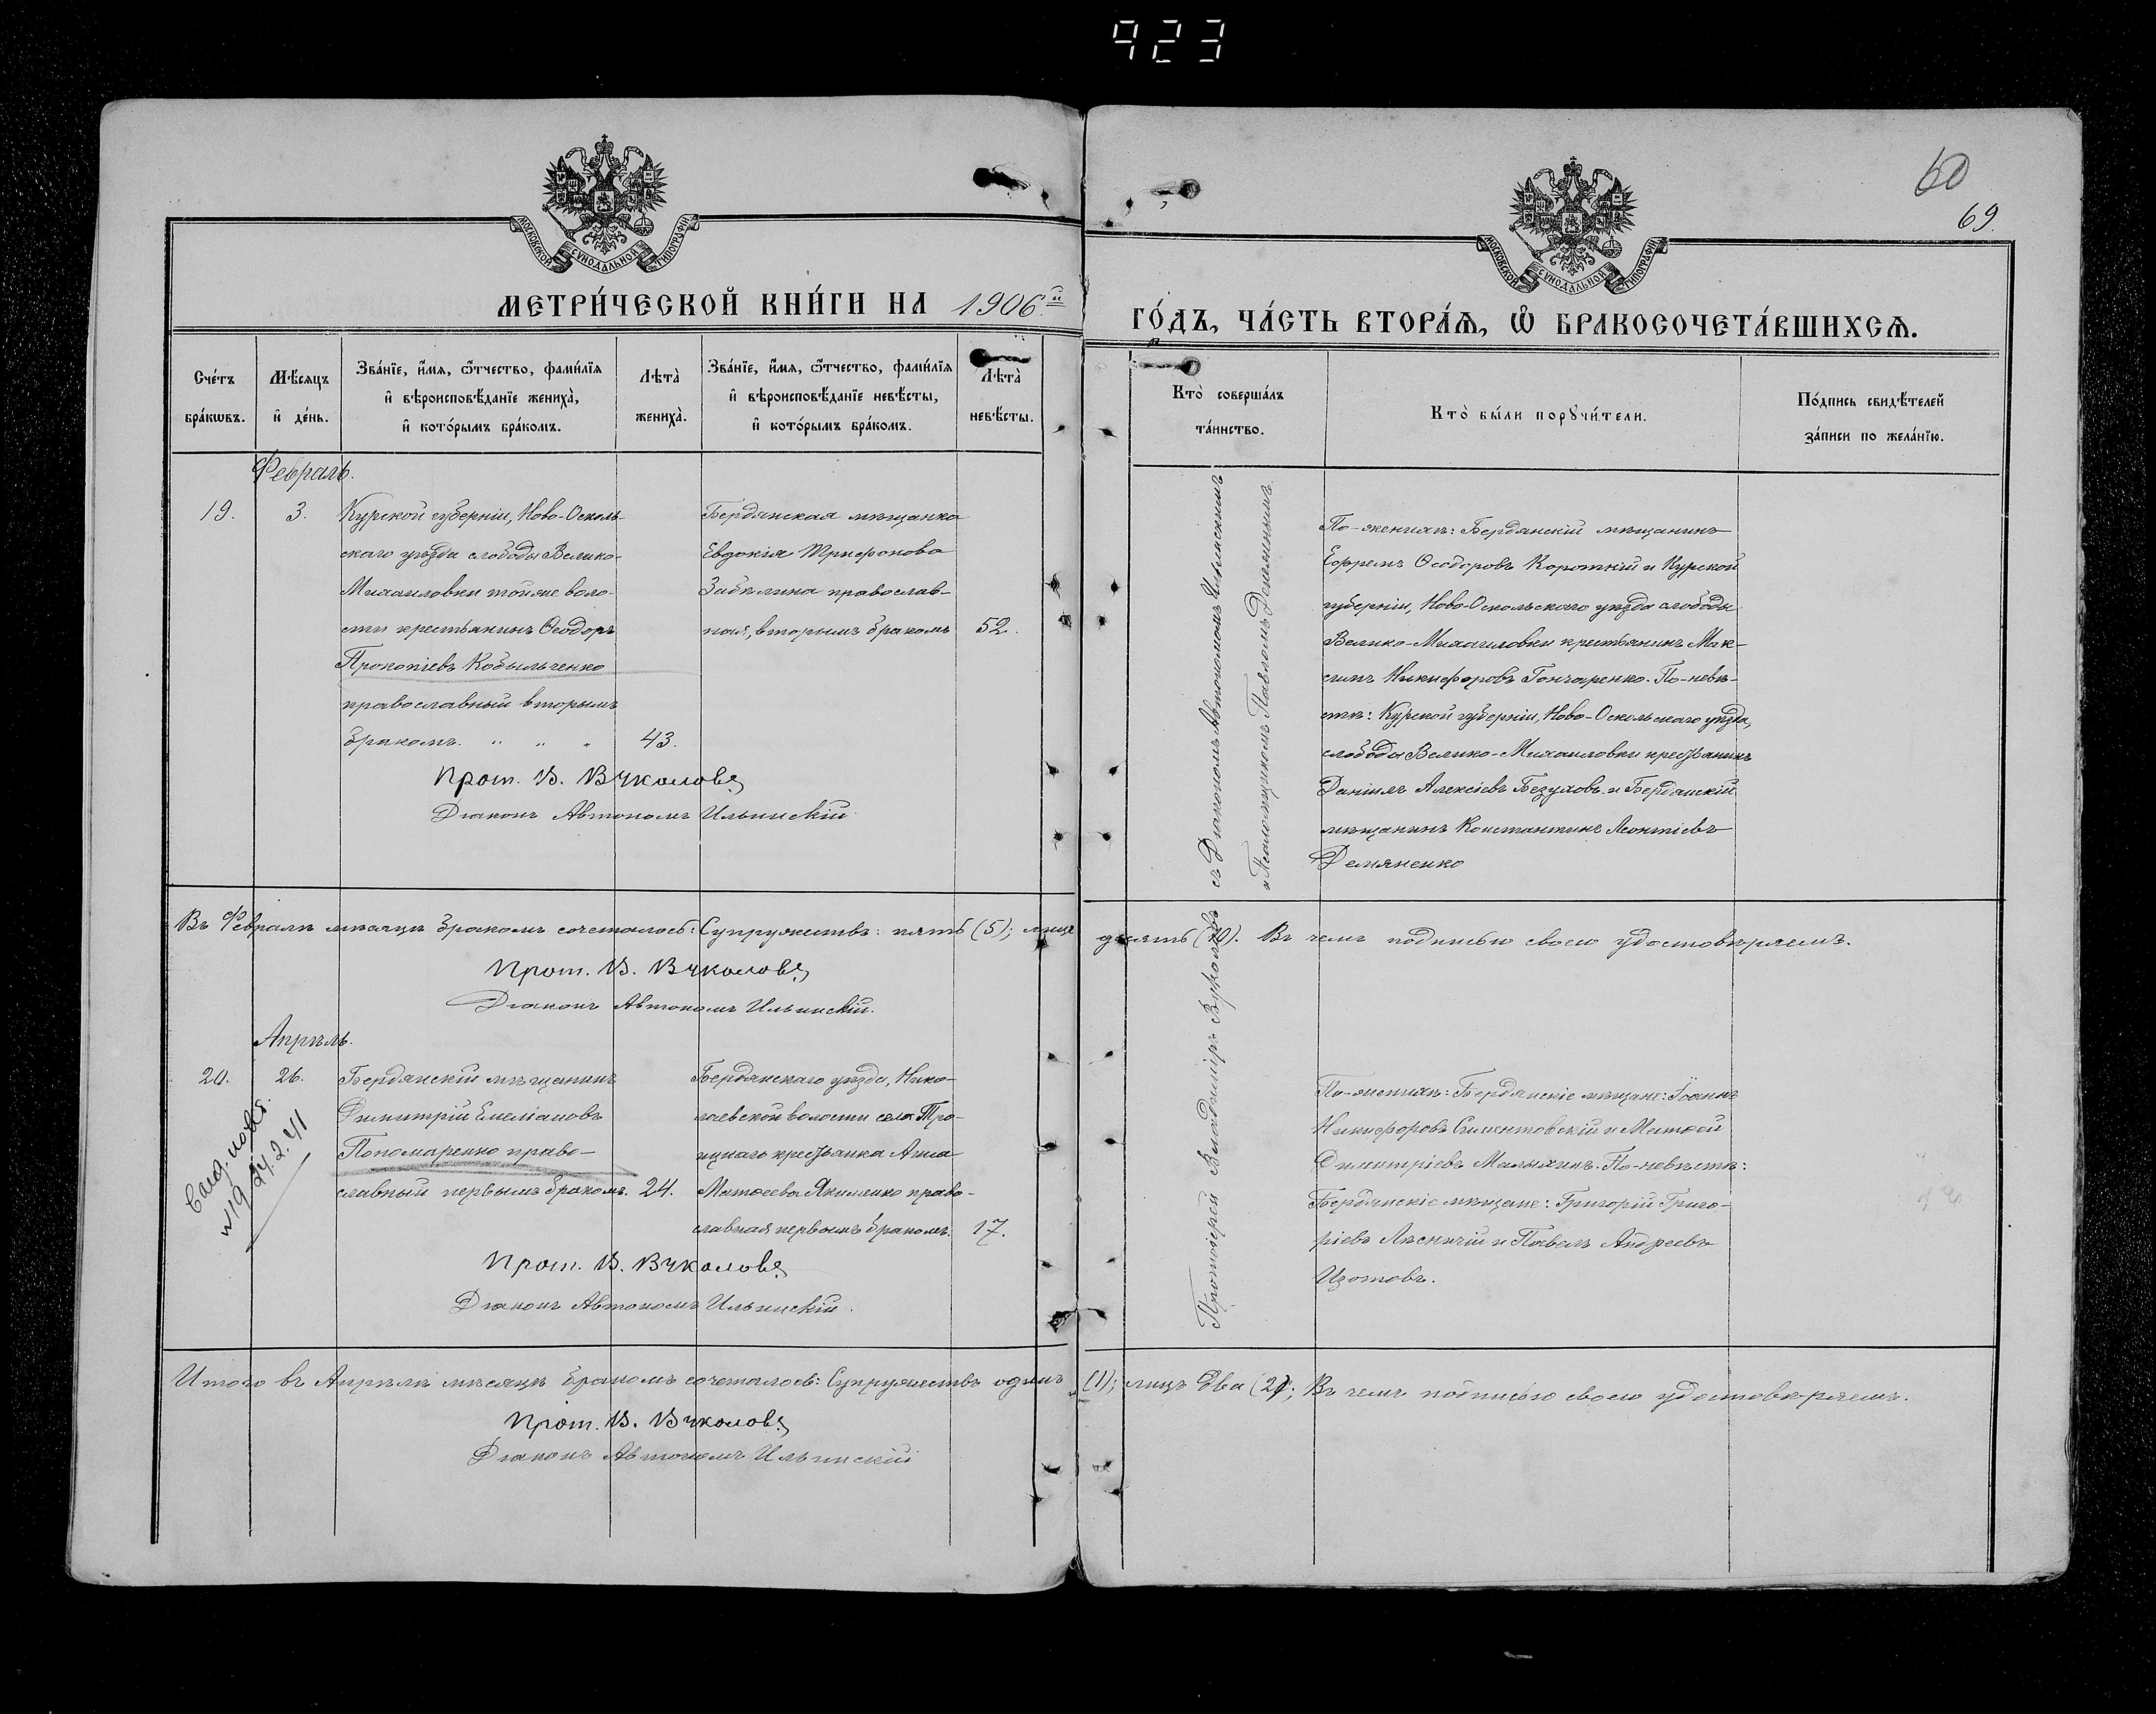 923
60
69.
МОСКОВСКОЙ СѴНОДАЛЬНОЙ ТИПОГРАФІИ
МОСКОВСКОЙ СѴНОДАЛЬНОЙ ТИПОГРАФІИ
МЕТРИ́ЧЕСКОЙ КНИ́ГИ НА 1906й
ГО́ДЪ, ЧА́СТЬ ВТОРА́Ѧ, Ѽ БРАКОСОЧЕТА́ВШИХСѦ.
Сче́тъ бра́кѡвъ.
Мѣ́сяцъ и де́нь.
Зва́нїе, и́мя, ѻ҆́тчество, фами́лїя и вѣроисповѣ́данїе жениха̀, и кото́рымъ бра́комъ.
Лѣта̀ жениха̀.
Зва́нїе, и́мя, ѻ҆́тчество, фами́лїя и вѣроисповѣ́данїе невѣ́сты, и кото́рымъ бра́комъ.
Лѣта̀ невѣ́сты.
Кто̀ соверша́лъ та́инство.
Кто̀ бы́ли порꙋчи́тели.
По́дпись свидѣ́телей за́писи по жела́нїю.
Февраль.
19.
3.
Курской губерніи, Ново-Осколь-
скаго уѣзда слободы Велико-
Михаиловки тойже воло-
сти крестьянинъ Ѳеодоръ
Прокопіевъ Кобыльченко
православный вторымъ
бракомъ. " " "
43.
Бердянская мѣщанка
Евдокія Трифонова
Забѣлина православ-
ная, вторымъ бракомъ
52.
Прот. В. Вуколовъ
Діаконъ Автономъ Ильинскій
Протоіерей Владимиръ Вуколовъ съ Діакономъ Автономомъ Ильинскимъ
и Псаломщикомъ Павломъ
По-женихѣ: Бердянскій мѣщанинъ
Ефремъ Ѳеодоровъ Короткій и Курской
губерніи, Ново-Оскольскаго уѣзда слободы
Велико-Михаиловки крестьянинъ Мак-
симъ Никифоровъ Гончаренко. По-невѣ-
стѣ: Курской губерніи, Ново-Оскольскаго уѣзда,
слободы Велико-Михаиловки крестьянинъ
Даніилъ Алексіевъ Безуловъ и Бердянскій
мѣщанинъ Константинъ Леонтіевъ
Демяненко
Въ Февралѣ мѣсяцѣ бракомъ сочеталось: Супружествъ: пять (5); лицъ десять (10). Въ чемъ подписью своею удостовѣряемъ.
Прот. В. Вуколовъ
Діаконъ Автономъ Ильинскій.
Апрѣль.
20.
26.
Бердянскій мѣщанинъ
Димитрій Емеліановъ
Пономаренко право-
славный первымъ бракомъ.
24.
Бердянскаго уѣзда, Нико-
лаевской волости села Тро-
ицкаго крестьянка Анна
Матѳеева Якименко право-
славная первымъ бракомъ.
17.
24.2.41
Прот. В. Вуколовъ
Діаконъ Автономъ Ильинскій.
По-женихѣ: Бердянскіе мѣщане: Іоаннъ
Никифоровъ Симентовскій и Матѳей
Димитріевъ Малыхинъ. По-невѣстѣ:
Бердянскіе мѣщане: Григорій Григо-
ріевъ Лѣсничій и Павелъ Андреевъ
Изотовъ.
Итого въ Апрѣлѣ мѣсяцѣ бракомъ сочеталось: Супружествъ одинъ (1); лицъ два (2); Въ чемъ подписью своею удостовѣряемъ.
Прот. В. Вуколовъ
Діаконъ Автономъ Ильинскій